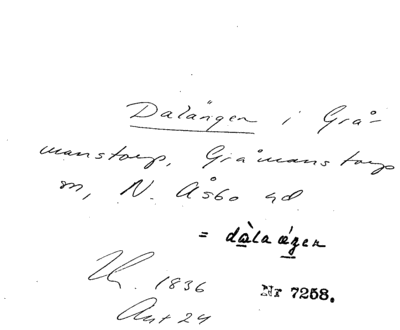 Dalången i Grå-
manstorp, Gråmanstorp
sn, N. Åsbo hd
= dàlaáŋen
Uk. 1836
Akt 24
Nr 7258.